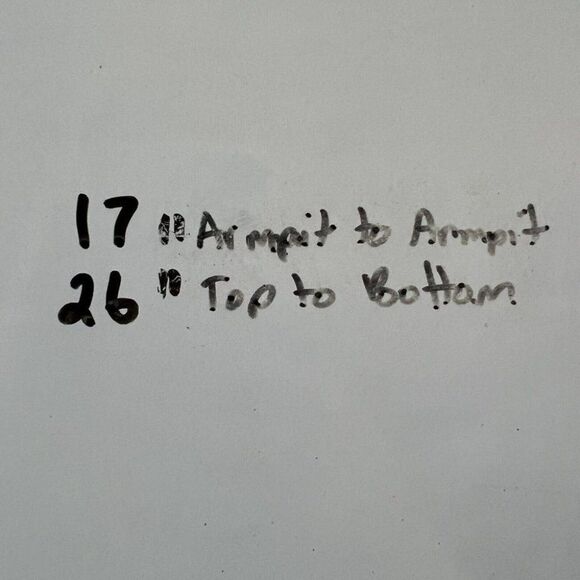 17 "Armpit to Armpit
26 " Top to Bottam